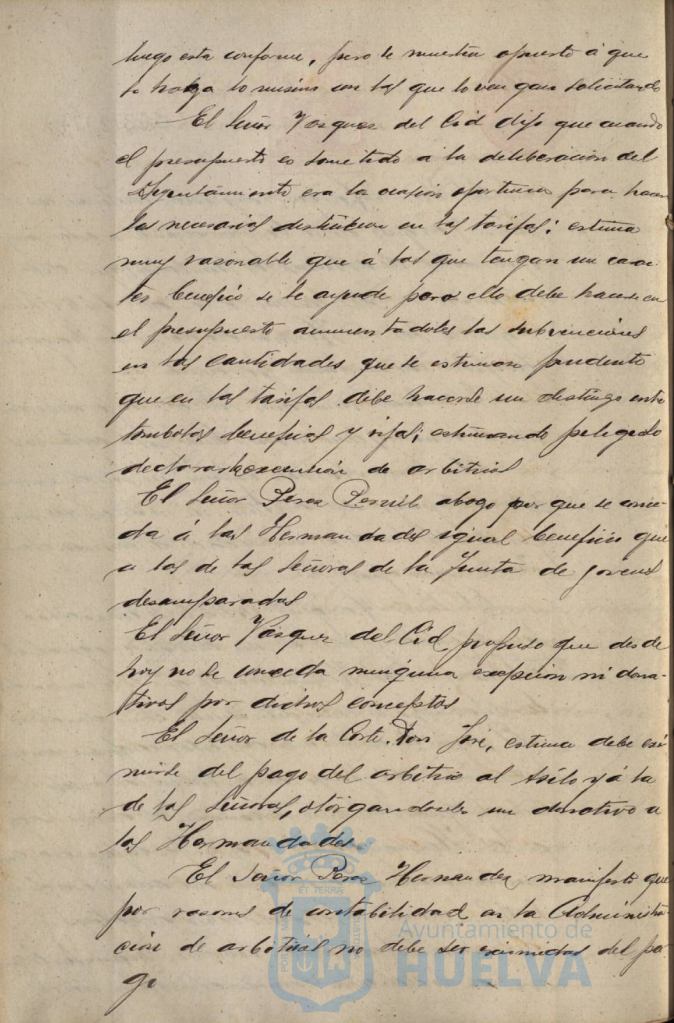 luego esta conforme, pero se muestra opuesto á que
se haga lo mismo con las que lo vengan solicitando
El Señor Vazquez del Cid dijo que cuando
el presupuesto es sometido a la deliberación del
Ayuntamiento era la ocasión oportuna para hacer
las necesarias en las tarifas; estima
muy rasonable que á las que tengan un carac
ter benefico se le ayude pero ello debe hacerse en
el presupuesto aumentandoles las subvenciones
en las cantidades que se estimen prudente
que en las tarifas debe hacerse un distingo entre
tombolas beneficas y rifas; estimando peligroso
declarar la exención de arbitrios
El Señor Perez abogo por que se conce-
da á las Hermandades igual beneficio que
a las de las Señoras de la Junta de jovenes
desamparadas
El Señor Vázquez del Cid, propuso que desde
hoy no se conceda ninguna exepcion ni dona-
tivos por dichos conceptos
El Señor de la Corte Don José, estima debe exi
mirse del pago del arbitrio al Asilo y á la
de las Señoras, otórgandosele un donativo a
las Hermandades.
El Señor Perez Hernandez, manifesto que
por razones de contabilidad en la Administra
ción de arbitrios no debe ser eximidas del pa-
go
Ayuntamiento de
HUELVA